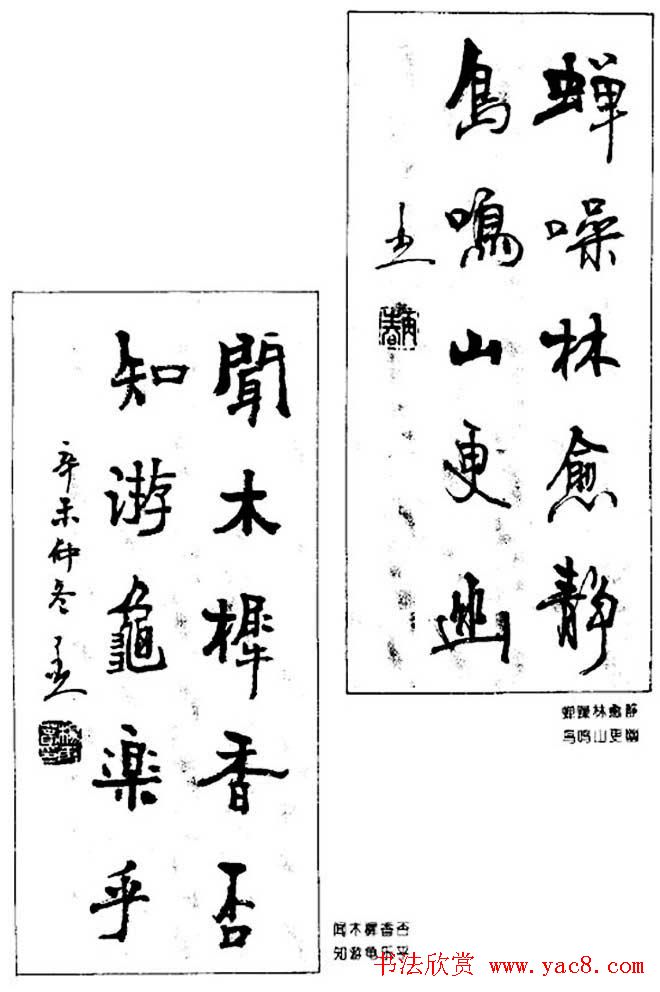 蝉噪林愈静
鸟鸣山更幽
蝉躁林愈静
鸟鸣山更幽
聞木樨香否
知游龜楽乎
辛未仲冬
闻木樨香否
知游龟乐乎
书法欣赏 www.yac8.com